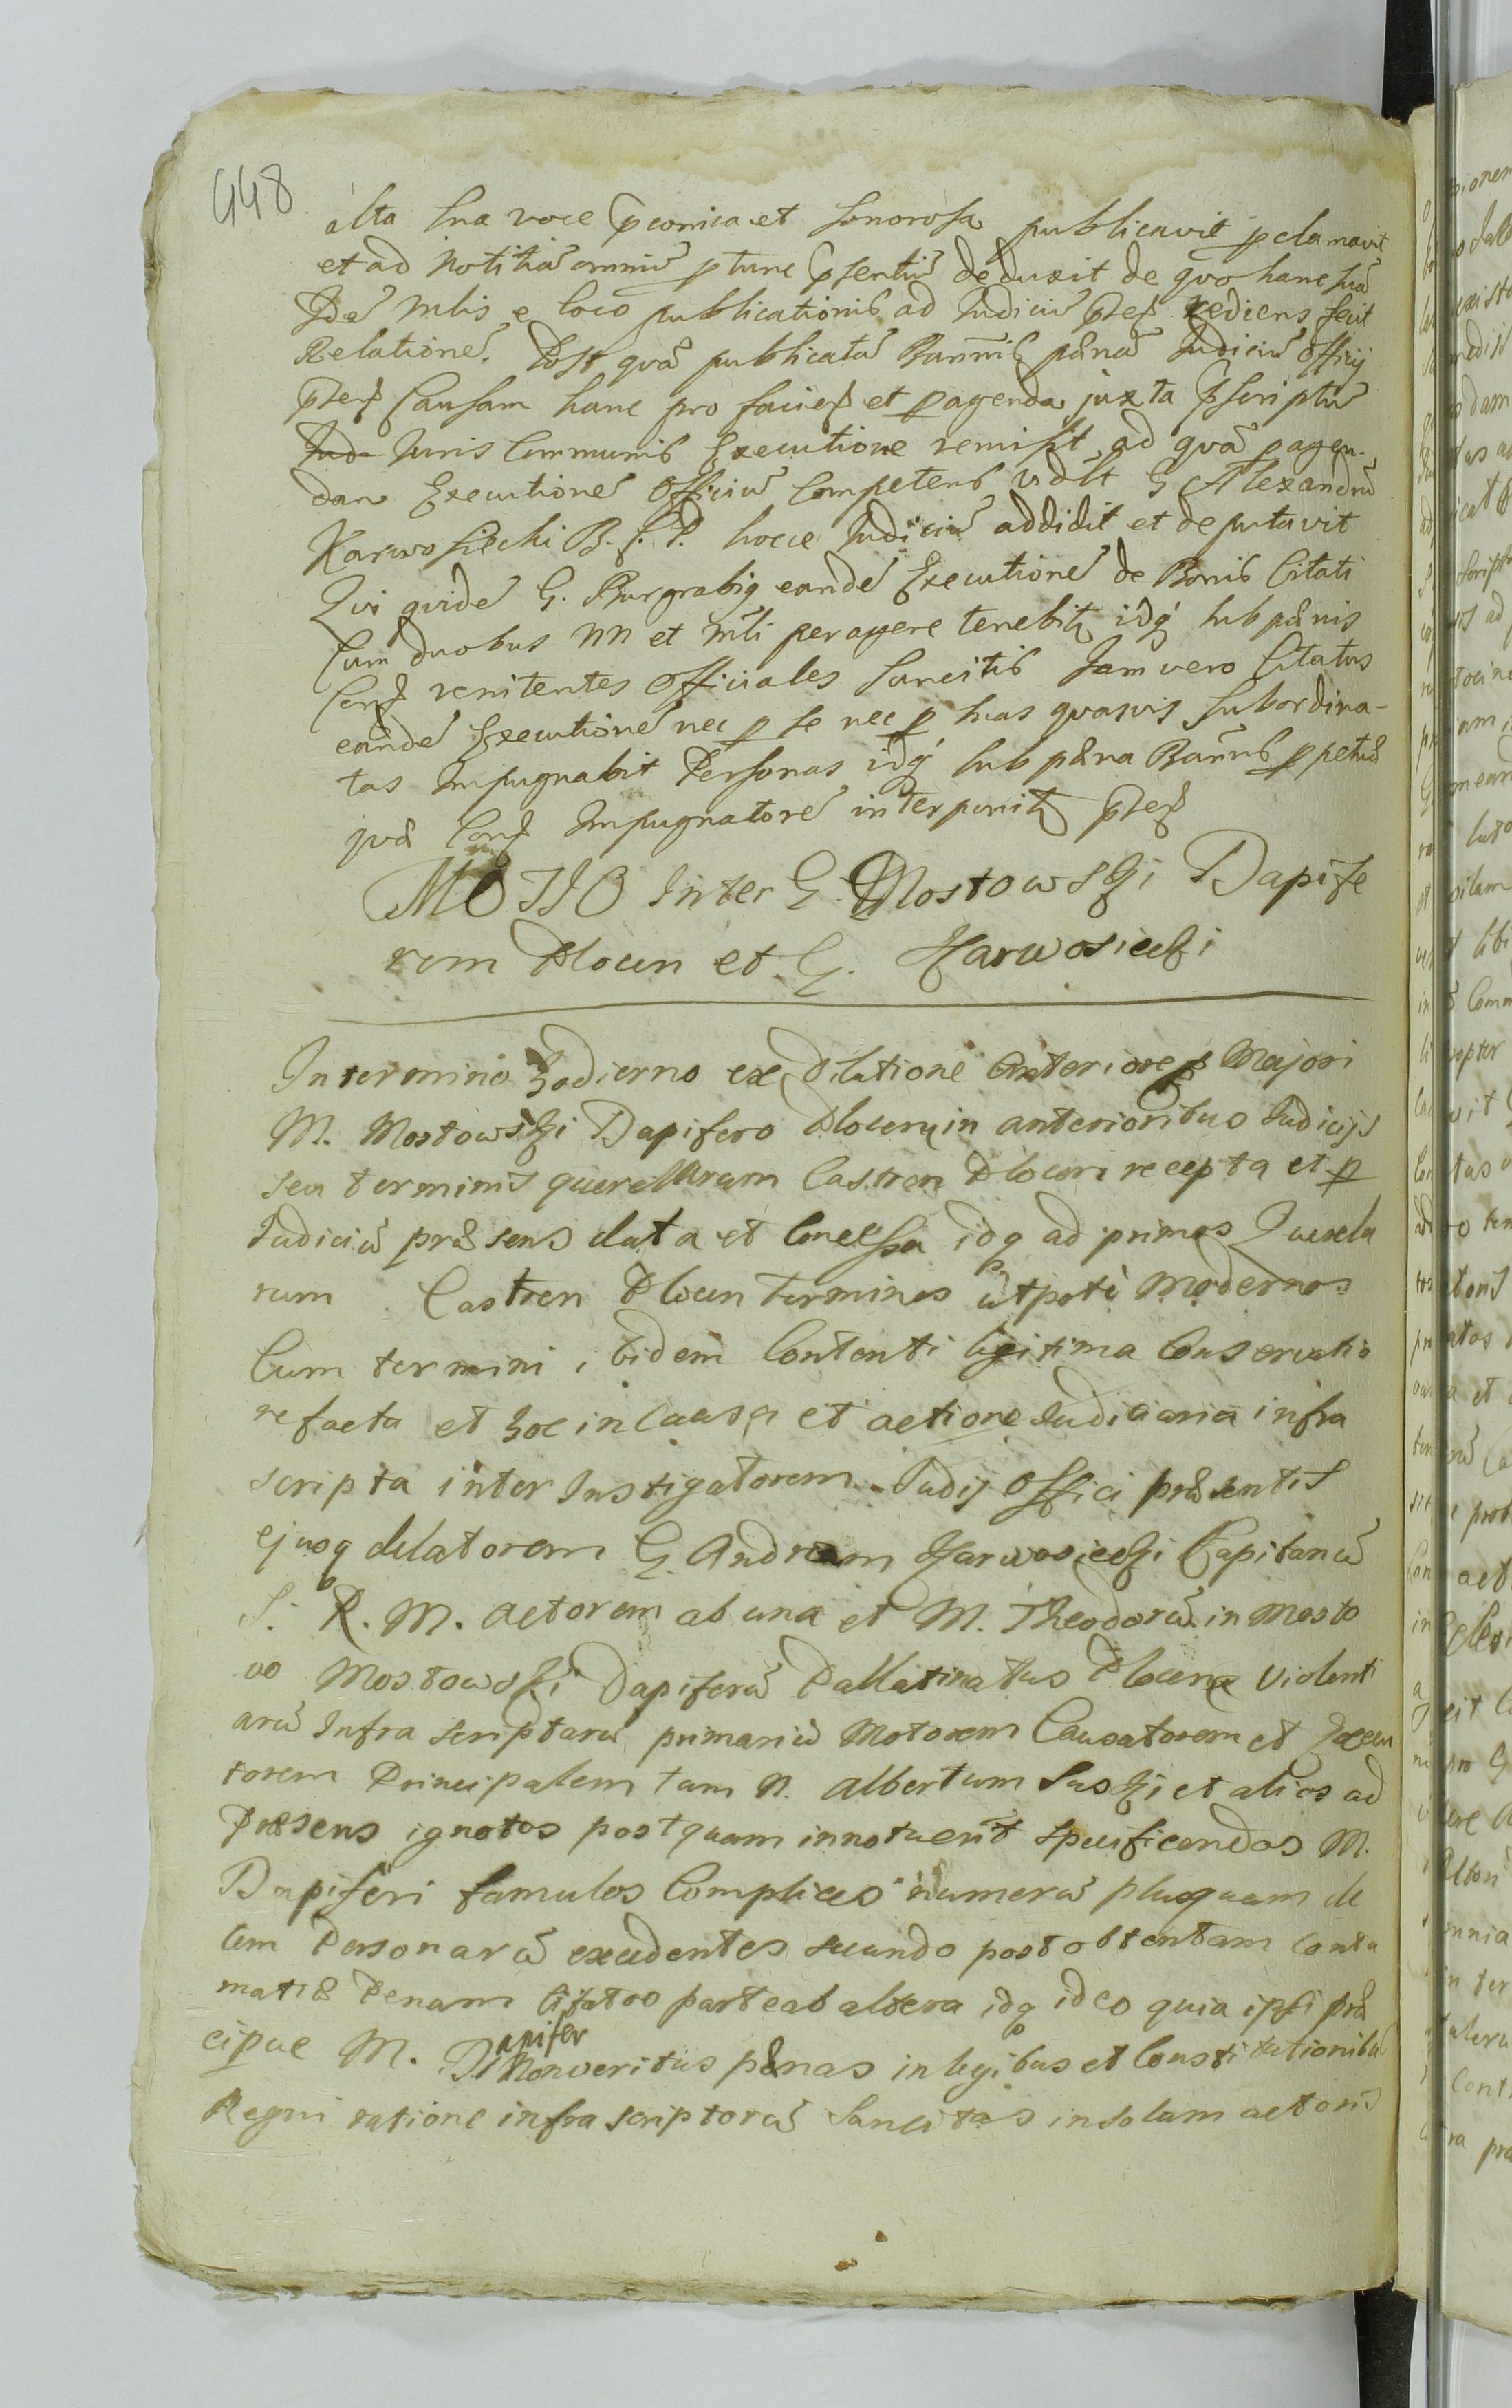 448
alta sua voce pconica et sonorosa publicavit pclamavit
et ad Notitiā omniū p tunc pſentiū deduxit de qvo hanc suā
Idē Mlis e loco publicationis ad Iudiciū pteſ rediens fecit
Relationē. Post qvā publicatā Bannis pænā Iudiciū Officij
pteſ Causam hanc pro facieſ et pagenda juxta pſcriptū
Iud Iuris Communis Executione remisit, ad qvā pagen-
dam Executionē Officiū Competens vdlt G Alexandrū
Karwosiecki B. C. P. hocce Iudiciū addidit et deputavit
Qvi qvidē G. Burgrabiq eandē Executionē de Bonis Citati
Cum duobus NN et Mli peragere tenebit idq sub pænis
Conſ renitentes Officiales Sancitis Jam vero Citatus
eandē Executionē nec p se nec p suas qvasvis Subordina-
tas Impugnabit Personas idq sub pæna Bannis ppetuæ
qvæ Conſ Impugnatorē interponit pteſ
MOTIO Inter G. Mostowski Dapife
rum Plocen et G. Karwosiecki
In termino hodierno ex Dilatione Anteriore p Majori
M. Mostowski Dapifero Plocen in anterioribus Iudicijs
seu terminis querellarum Castren Plocen recepta et p
Iudiciū præsens data et Concessa idq ad primos Querela
rum Castren Plocen terminos utpote modernos
Cum termini ibidem Contenti legitima Conservatio
refacta et hoc in Causa et actione Iudiciaria infra
scripta inter Instigatorem Iudij Offici præsentis
ejusq delatorem G. Andream Karwosiecki Capitanū
S. R. M. actorem ab una et M. Theodorū in Mosto
vo Mostowski Dapiferū Pallatinatus Plocen Violenti
arū Infra scriptarū primariū Motorem Causatorem et Execu
torem Principalem tam N. Albertum Suski et alios ad
Præsens ignotos postquam innotuerīt specificandos M.
Dapiferi famulos Complices numerū plusquam de
cem Personarū excedentes secundo post obtentam Contu
matiæ Penam Citatos parte ab altera idq ideo quia ipsi præ
cipue M. Dapifer Nonveritus pænas in legibus et Constitutionibus
Regni ratione infra scriptorū Sancitas in solum actoris